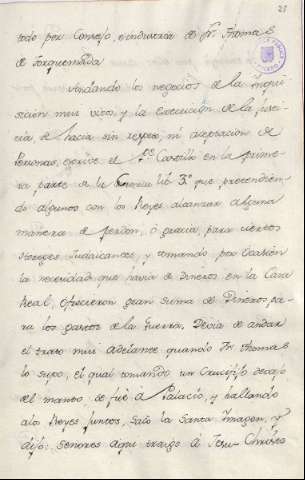 21
todo por Consejo, e industria de fr. Thomas
de Torquemada
Andando los negocios de la inqui
sicion mui vivos, y la execucion de la jus
ticia se hacia sin respeto, ni acepcion de
Personas, escrive el Castillo en la prime
ra parte de la lib 3º que pretendien
do algunos con los Reyes alcanzar alguna
manera de perdon, ó gracia, para ciertos
Hereges Judaizantes, y tomando por Ocasion
la necesidad que havia de Dineros en la Casa
Real, ofrecieron gran suma de Dineros pa
ra los gastos de la Guerra. Devia de andar
el trato mui adelante quando fr. Thomas
lo supo, el qual tomando un Crucifijo devajo
del manto se fué á Palacio, y hallando
alos Reyes juntos, saco la Santa Imagen, y
dijo: Señores aqui traigo á Jesu-Christo